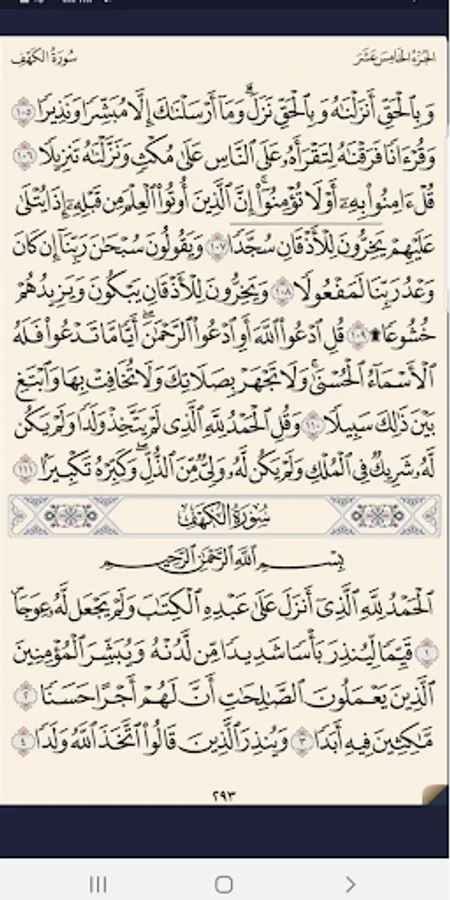 سُورَةُ الكَهْفِ الجُزْءُ الخَامِسَ عَشَرَ
وَبِٱلْحَقِّ أَنزَلْنَٰهُ وَبِٱلْحَقِّ نَزَلَۗ وَمَآ أَرْسَلْنَٰكَ إِلَّا مُبَشِّرًا وَنَذِيرًا ١٠٥
وَقُرْءَانًا فَرَقْنَٰهُ لِتَقْرَأَهُۥ عَلَى ٱلنَّاسِ عَلَىٰ مُكْثٍ وَنَزَّلْنَٰهُ تَنزِيلًا ١٠٦
قُلْ ءَامِنُوا۟ بِهِۦٓ أَوْ لَا تُؤْمِنُوٓا۟ۚ إِنَّ ٱلَّذِينَ أُوتُوا۟ ٱلْعِلْمَ مِن قَبْلِهِۦٓ إِذَا يُتْلَىٰ
عَلَيْهِمْ يَخِرُّونَ لِلْأَذْقَانِ سُجَّدًا ١٠٧ وَيَقُولُونَ سُبْحَٰنَ رَبِّنَآ إِن كَانَ
وَعْدُ رَبِّنَا لَمَفْعُولًا ١٠٨ وَيَخِرُّونَ لِلْأَذْقَانِ يَبْكُونَ وَيَزِيدُهُمْ
خُشُوعًا ۩ ١٠٩ قُلِ ٱدْعُوا۟ ٱللَّهَ أَوِ ٱدْعُوا۟ ٱلرَّحْمَٰنَۖ أَيًّا مَّا تَدْعُوا۟ فَلَهُ
ٱلْأَسْمَآءُ ٱلْحُسْنَىٰۚ وَلَا تَجْهَرْ بِصَلَاتِكَ وَلَا تُخَافِتْ بِهَا وَٱبْتَغِ
بَيْنَ ذَٰلِكَ سَبِيلًا ١١٠ وَقُلِ ٱلْحَمْدُ لِلَّهِ ٱلَّذِى لَمْ يَتَّخِذْ وَلَدًا وَلَمْ يَكُن
لَّهُۥ شَرِيكٌ فِى ٱلْمُلْكِ وَلَمْ يَكُن لَّهُۥ وَلِىٌّ مِّنَ ٱلذُّلِّۖ وَكَبِّرْهُ تَكْبِيرًۢا ١١١
سُورَةُ الكَهْفِ
بِسْمِ ٱللَّهِ ٱلرَّحْمَٰنِ ٱلرَّحِيمِ
ٱلْحَمْدُ لِلَّهِ ٱلَّذِىٓ أَنزَلَ عَلَىٰ عَبْدِهِ ٱلْكِتَٰبَ وَلَمْ يَجْعَل لَّهُۥ عِوَجَاۜ
١ قَيِّمًا لِّيُنذِرَ بَأْسًا شَدِيدًا مِّن لَّدُنْهُ وَيُبَشِّرَ ٱلْمُؤْمِنِينَ
ٱلَّذِينَ يَعْمَلُونَ ٱلصَّٰلِحَٰتِ أَنَّ لَهُمْ أَجْرًا حَسَنًا ٢
مَّٰكِثِينَ فِيهِ أَبَدًا ٣ وَيُنذِرَ ٱلَّذِينَ قَالُوا۟ ٱتَّخَذَ ٱللَّهُ وَلَدًا ٤
٢٩٣